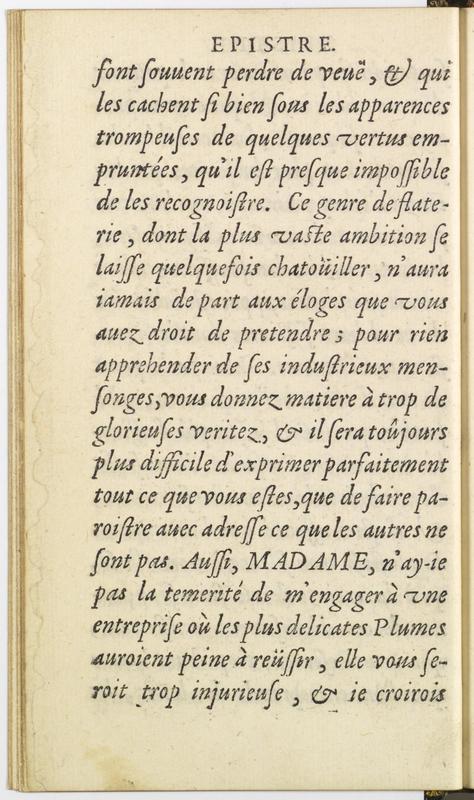 EPISTRE.
font ſouuent perdre de veuë, & qui
les cachent ſi bien ſous les apparences
trompeuſes de quelques vertus em-
pruntées, qu'il eſt preſque impoſſible
de les recognoiſtre. Ce genre de flate-
rie, dont la plus vaſte ambition ſe
laiſſe quelquefois chatoüiller, n'aura
iamais de part aux éloges que vous
auez droit de pretendre; pour rien
apprehender de ſes induſtrieux men-
ſonges, vous donnez matiere à trop de
glorieuſes veritez, & il ſera toûjours
plus difficile d'exprimer parfaitement
tout ce que vous eſtes, que de faire pa-
roiſtre auec adreſſe ce que les autres ne
ſont pas. Auſſi, MADAME, n'ay-ie
pas la temerité de m'engager à vne
entrepriſe où les plus delicates Plumes
auroient peine à reüſſir, elle vous ſe-
roit trop injurieuſe, & ie croirois